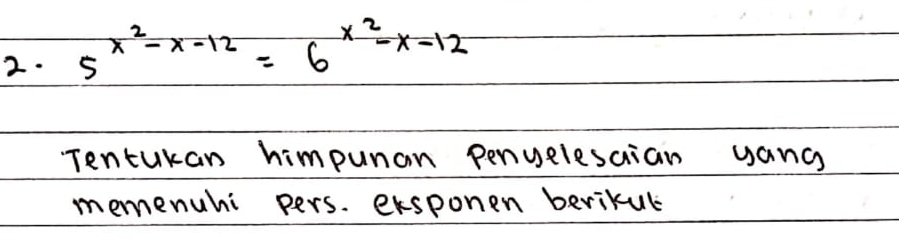 2. 5^(x²-x-12) = 6^(x²-x-12)
Tentukan himpunan Penyelesaian yang
memenuhi pers. eksponen berikut